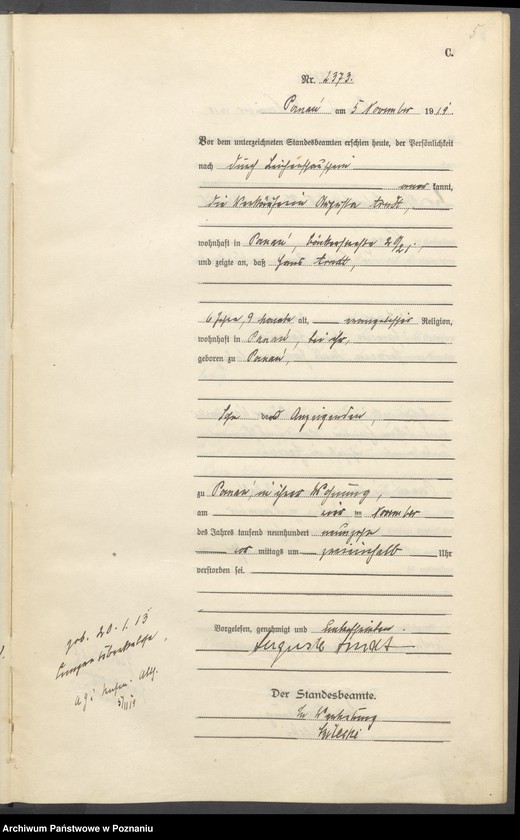 5
C.
Nr. 2373.
Posen am 5 November 1919.
Vor dem unterzeichneten Standesbeamten erschien heute, der Persönlichkeit
nach durch Leichenschauschein
anerkannt,
die Verkäuferin Auguste Arndt,
wohnhaft in Posen, Bäckerstraße 20/21,
und zeigte an, daß Hans Arndt,
6 Jahre, 9 Monate alt, evangelischer Religion,
wohnhaft in Posen, bei ihr,
geboren zu Posen,
Sohn der Anzeigenden,
zu Posen, in ihrer Wohnung,
am vier ten November
des Jahres tausend neunhundert neunzehn
vor mittags um Uhr
verstorben sei.
Vorgelesen, genehmigt und unterschrieben.
Auguste Arndt
geb. 20.1.13
Der Standesbeamte.
In Vertretung
Archiwum Państwowe w Poznaniu